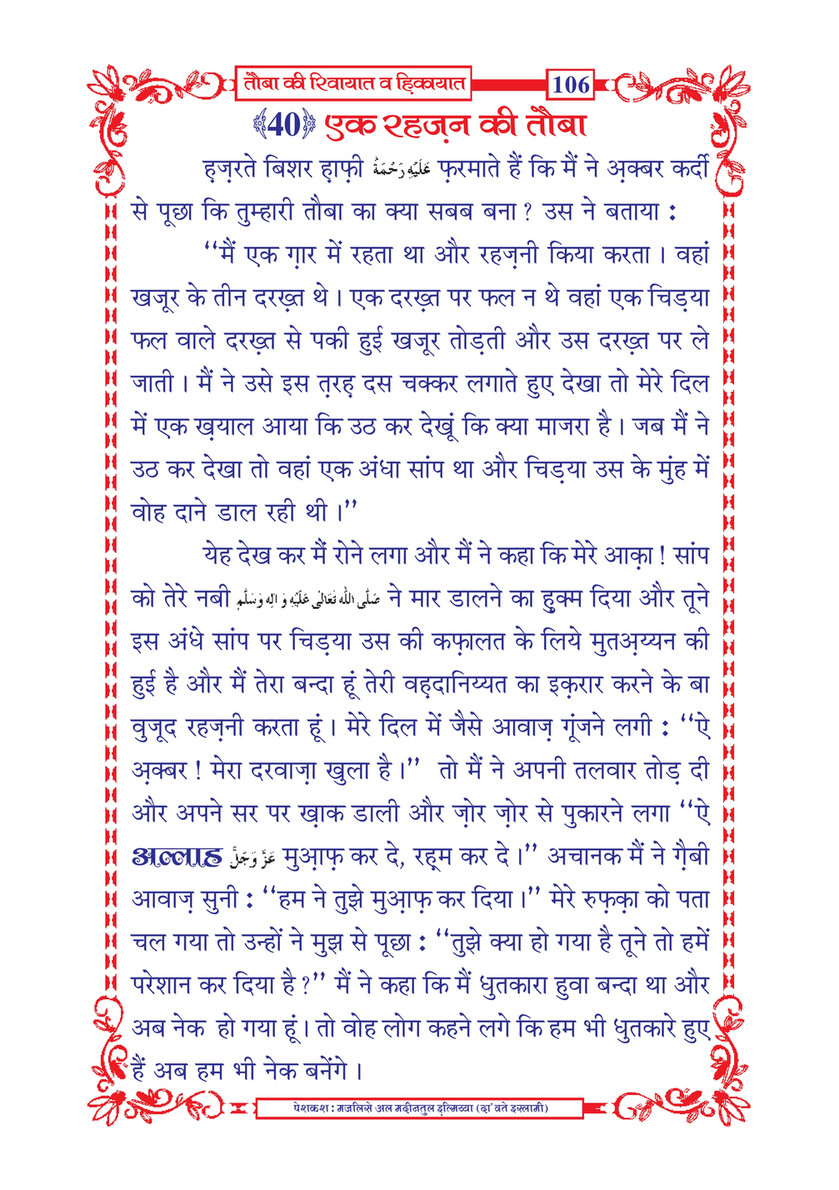 तौबा की रिवायात व ह़िकायात
106
﴾40﴿ एक रहज़न की तौबा
ह़ज़रते बिशर ह़ाफ़ी عَلَيْهِ رَحْمَةُ फ़रमाते हैं कि मैं ने अ़क्बर कर्दी
से पूछा कि तुम्हारी तौबा का क्या सबब बना ? उस ने बताया :
‘‘मैं एक ग़ार में रहता था और रहज़नी किया करता । वहां
खजूर के तीन दरख़्त थे । एक दरख़्त पर फल न थे वहां एक चिड़या
फल वाले दरख़्त से पकी हुई खजूर तोड़ती और उस दरख़्त पर ले
जाती । मैं ने उसे इस त़रह़ दस चक्कर लगाते हुए देखा तो मेरे दिल
में एक ख़याल आया कि उठ कर देखूं कि क्या माजरा है । जब मैं ने
उठ कर देखा तो वहां एक अंधा सांप था और चिड़या उस के मुंह में
वोह दाने डाल रही थी ।’’
येह देख कर मैं रोने लगा और मैं ने कहा कि मेरे आक़ा ! सांप
को तेरे नबी صَلَّى اللّٰه تَعَالٰى عَلَيْهِ وَ اٰلِهٖ وَسَلَّم ने मार डालने का हुक्म दिया और तूने
इस अंधे सांप पर चिड़या उस की कफ़ालत के लिये मुतअ़य्यन की
हुई है और मैं तेरा बन्दा हूं तेरी वह़दानिय्यत का इक़रार करने के बा
वुजूद रहज़नी करता हूं । मेरे दिल में जैसे आवाज़ गूंजने लगी : ‘‘ऐ
अ़क्बर ! मेरा दरवाज़ा खुला है ।’’ तो मैं ने अपनी तलवार तोड़ दी
और अपने सर पर ख़ाक डाली और ज़ोर ज़ोर से पुकारने लगा ‘‘ऐ
अल्लाह عَزَّ وَجَلَّ मुआ़फ़ कर दे, रह़म कर दे ।’’ अचानक मैं ने ग़ैबी
आवाज़ सुनी : ‘‘हम ने तुझे मुआ़फ़ कर दिया ।’’ मेरे रुफ़क़ा को पता
चल गया तो उन्हों ने मुझ से पूछा : ‘‘तुझे क्या हो गया है तूने तो हमें
परेशान कर दिया है ?’’ मैं ने कहा कि मैं धुतकारा हुवा बन्दा था और
अब नेक हो गया हूं । तो वोह लोग कहने लगे कि हम भी धुतकारे हुए
हैं अब हम भी नेक बनेंगे ।
पेशकश : मजलिसे अल मदीनतुल इ़ल्मिय्या (दा'वते इस्लामी)